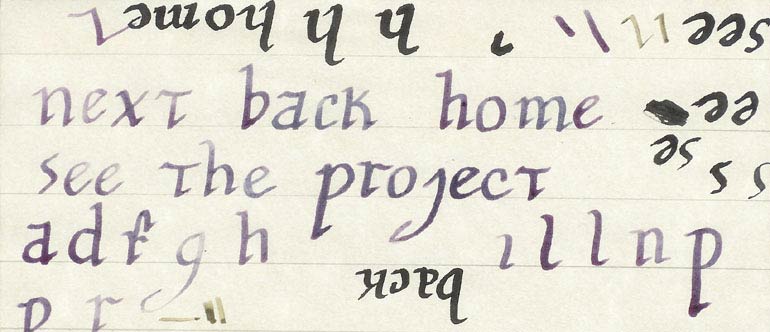 home h h h
see
next back home
ee
see the project
se
s s
a d f g h i l l n p
back
p r